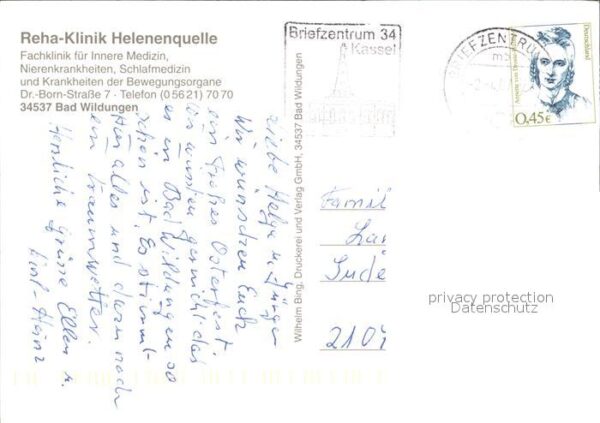 Reha-Klinik Helenenquelle
Fachklinik für Innere Medizin,
Nierenkrankheiten, Schlafmedizin
und Krankheiten der Bewegungsorgane
Dr.-Born-Straße 7 · Telefon (0 56 21) 70 70
34537 Bad Wildungen
Liebe Helga u. Jürgen
Wir wünschen Euch
ein frohes Osterfest
Wir wussten garnicht das
es in Bad Wildungen so
schön ist. Es stimmt
hier alles und dann noch
ein Traumwetter.
Herzliche Grüsse Ellen u.
Karl-Heinz
Wilhelm Bing, Druckerei und Verlag GmbH, 34537 Bad Wildungen
Briefzentrum 34
Kassel
BRIEFZENTRUM
Deutschland
0,45€
Famil
Lar
Sude
210
privacy protection
Datenschutz